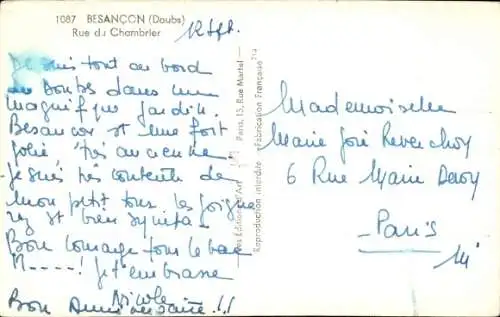 1087 BESANÇON (Doubs)
Rue du Chambrier
12 Sept.
Je suis tout au bord
du Doubs dans un
magnifique jardin.
Besancon est une fort
jolie, très ancienne
Je suis très contente de
mon petit
est bien sympa.
Bon courage pour le bac
M----! Je t'embrasse
Nicole
Bon Anniversaire!!
Les Editions d'Art Paris, 15, Rue Martel
Reproduction interdite - Fabrication Française
Mademoiselle
Marie José
6 Rue Marie Davy
Paris
14